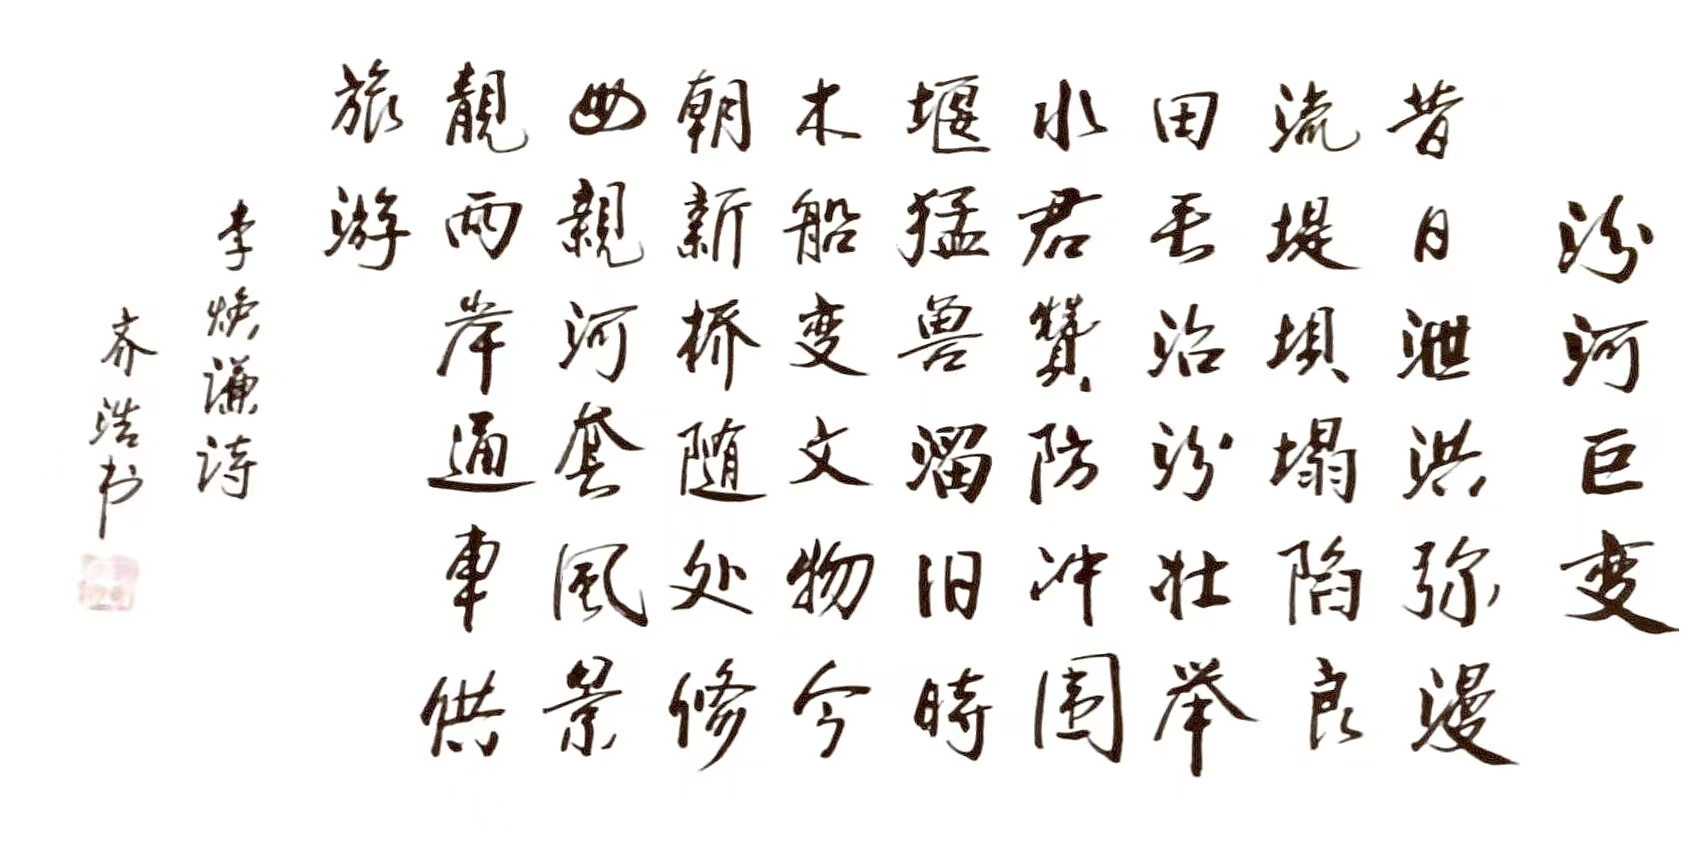 汾河巨变
昔日泄洪弥漫
流堤坝塌陷良
田丢治汾壮举
水君贊防冲围
堰猛兽溜旧時
木船变文物今
朝新桥随处修
母親河套風景
靓两岸通車供
旅游
李焕谦诗
齐浩书